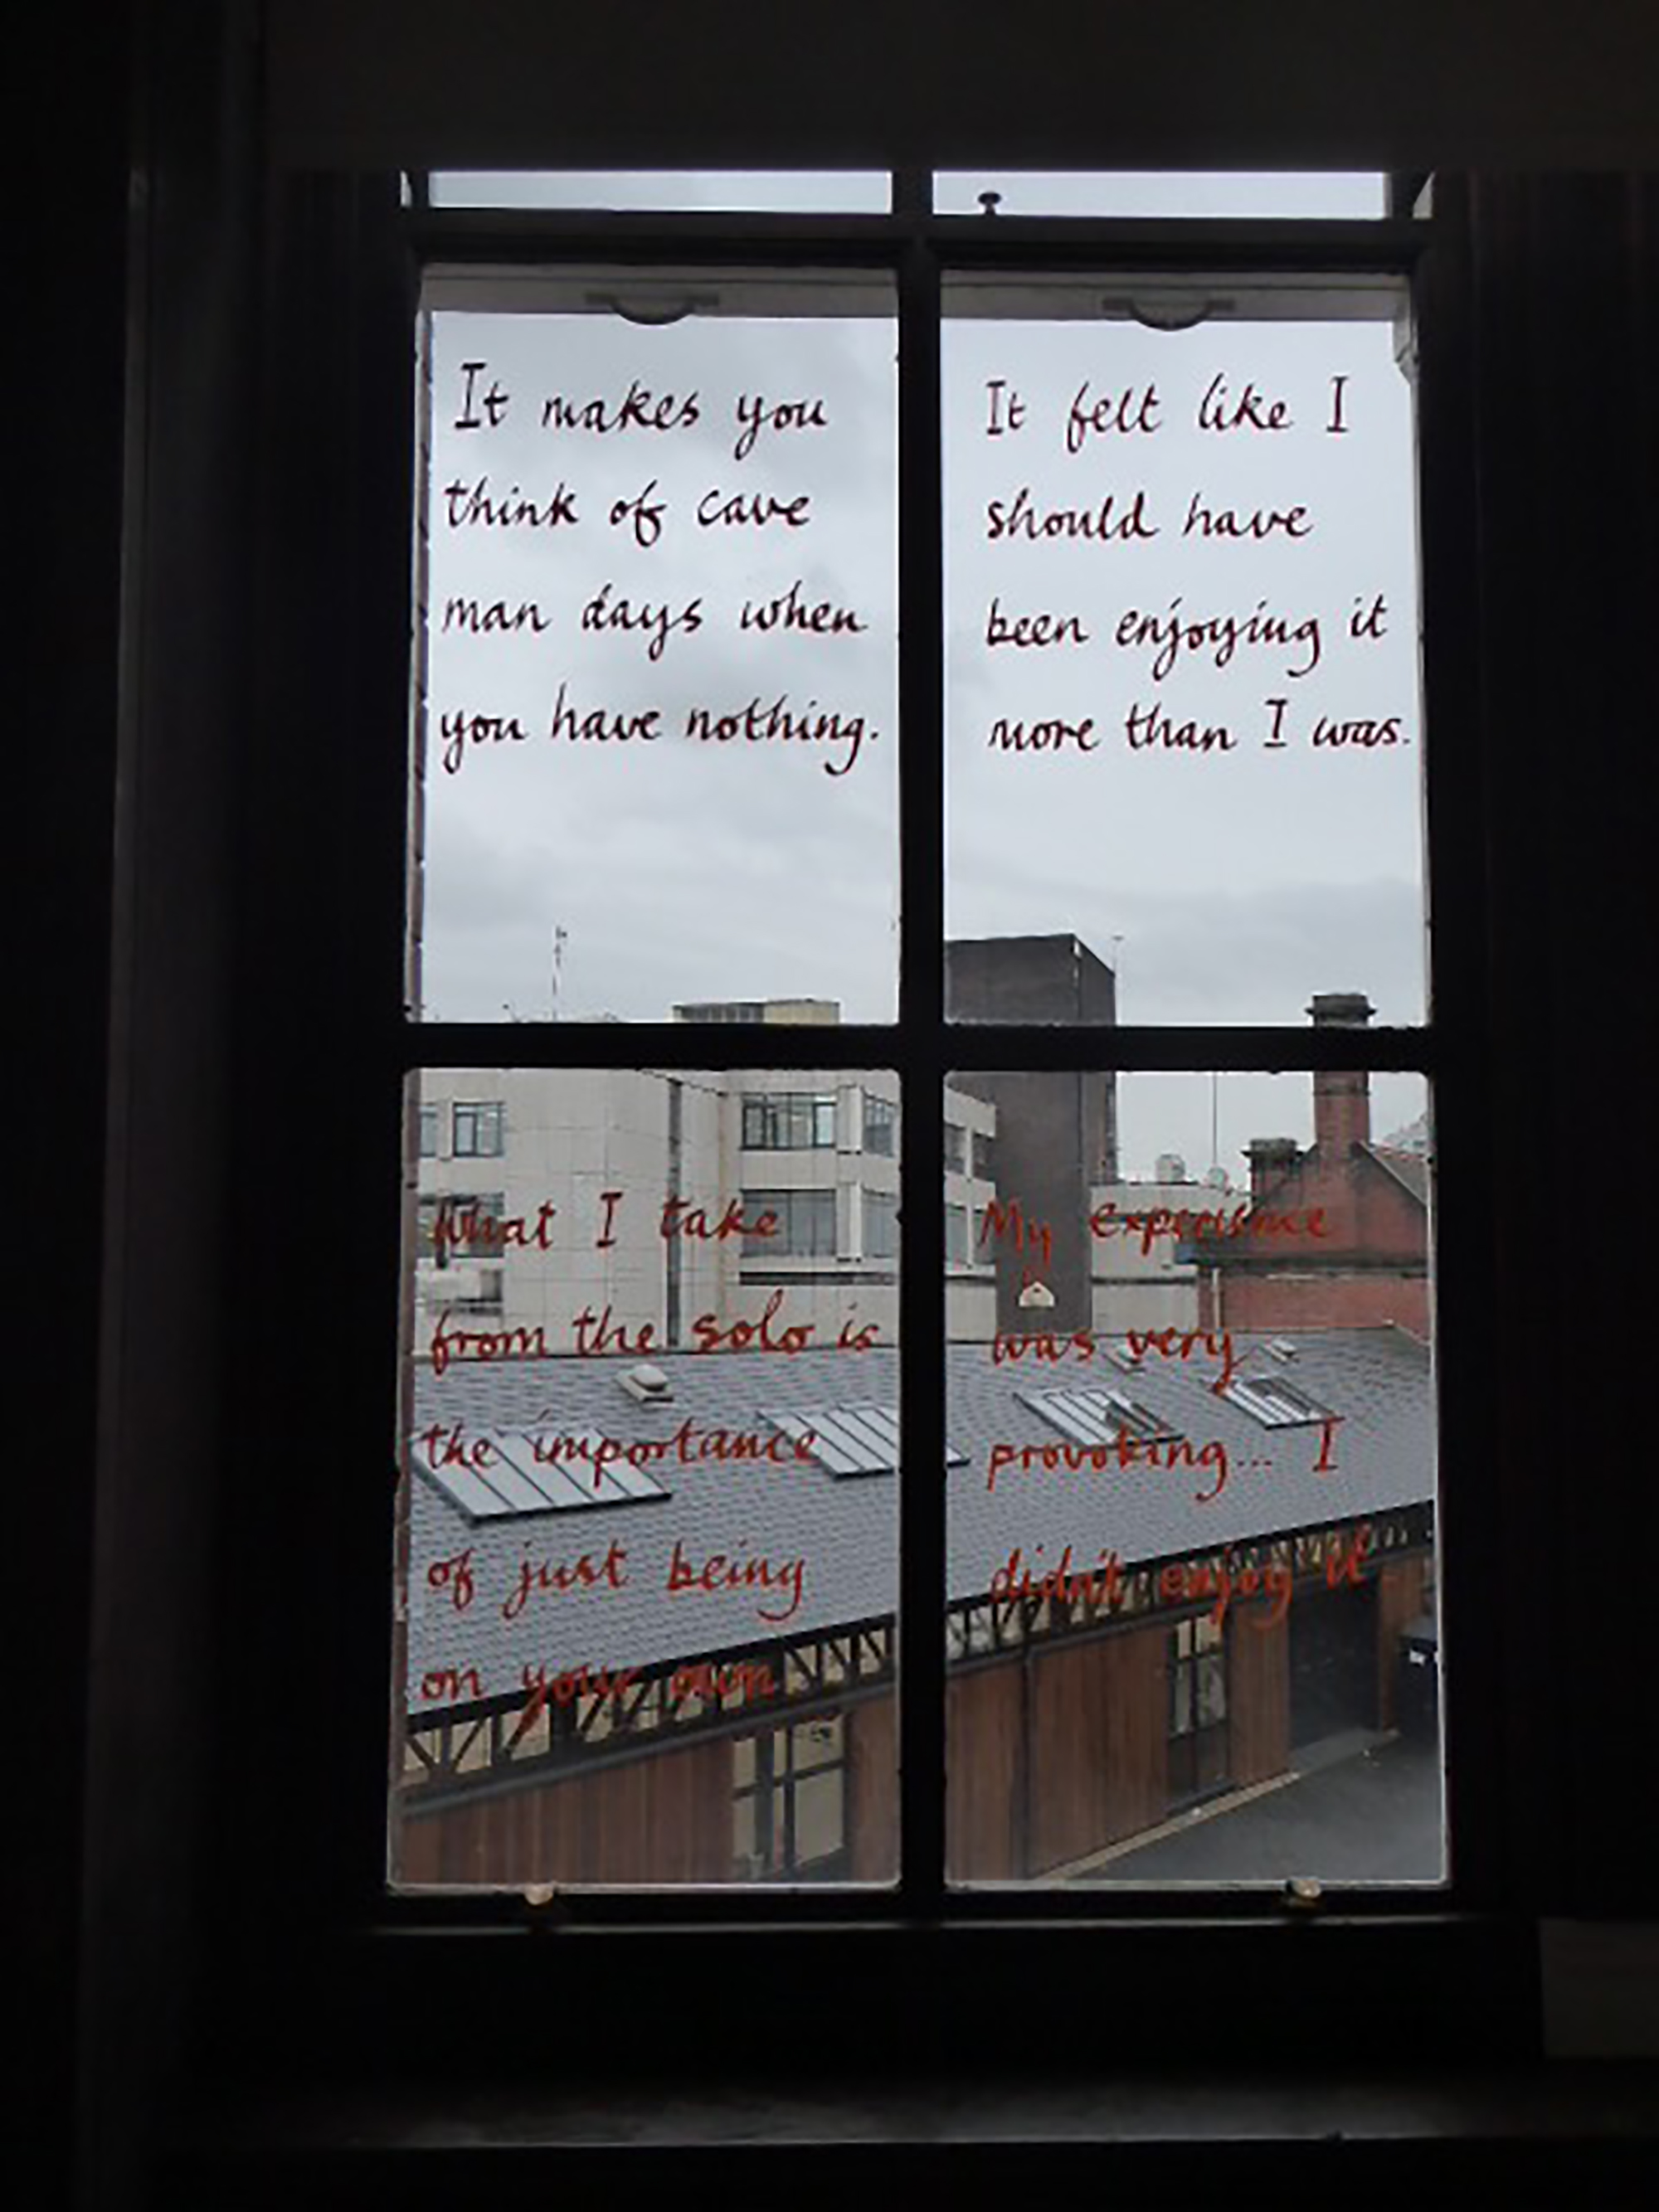 It makes you
think of cave
man days when
you have nothing.
It felt like I
should have
been enjoying it
more than I was.
What I take
from the solo is
the importance
of just being
on your own
My experience
was very
provoking... I
didn't enjoy it